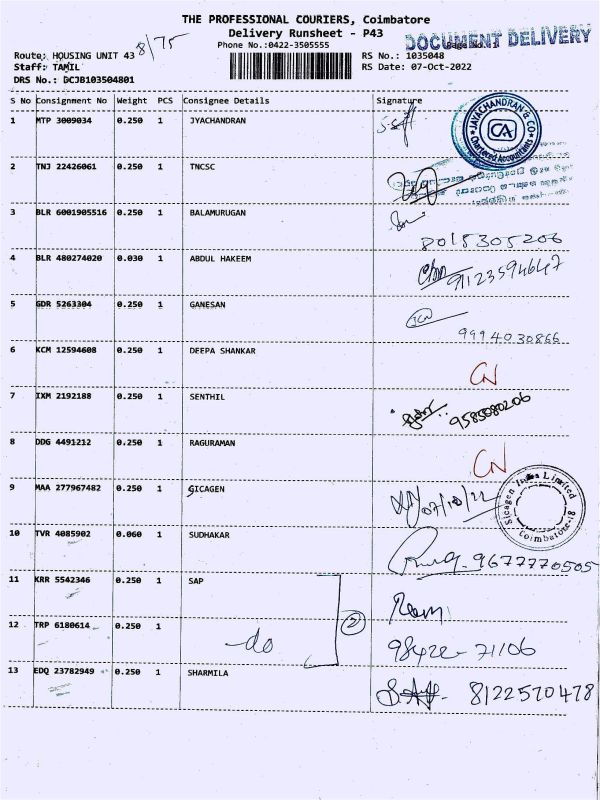 THE PROFESSIONAL COURIERS, Coimbatore
Delivery Runsheet - P43
Phone No.:0422-3505555
DOCUMENT DELIVERY
Page No.:1
Route: HOUSING UNIT 43 8/75
Staff: TAMIL
DRS No.: DCJB103504801
RS No.: 1035048
RS Date: 07-Oct-2022
S No Consignment No Weight PCS Consignee Details Signature
1 MTP 3009034 0.250 1 JYACHANDRAN
JAYACHANDRAN & CO
CA
Chartered Accountants
2 TNJ 22426061 0.250 1 TNCSC
3 BLR 6001905516 0.250 1 BALAMURUGAN
8015305206
4 BLR 480274020 0.030 1 ABDUL HAKEEM
91123594647
5 GDR 5263304 0.250 1 GANESAN
9994030866
6 KCM 12594608 0.250 1 DEEPA SHANKAR
CN
7 IXM 2192188 0.250 1 SENTHIL
9585080206
8 DDG 4491212 0.250 1 RAGURAMAN
CN
9 MAA 277967482 0.250 1 GICAGEN
07/10/22
Sicagen India Limited
Coimbatore-18
10 TVR 4085902 0.060 1 SUDHAKAR
9677770505
11 KRR 5542346 0.250 1 SAP
Ram
12 TRP 6180614 0.250 1
-do
2
98422-71106
13 EDQ 23782949 0.250 1 SHARMILA
8122570478